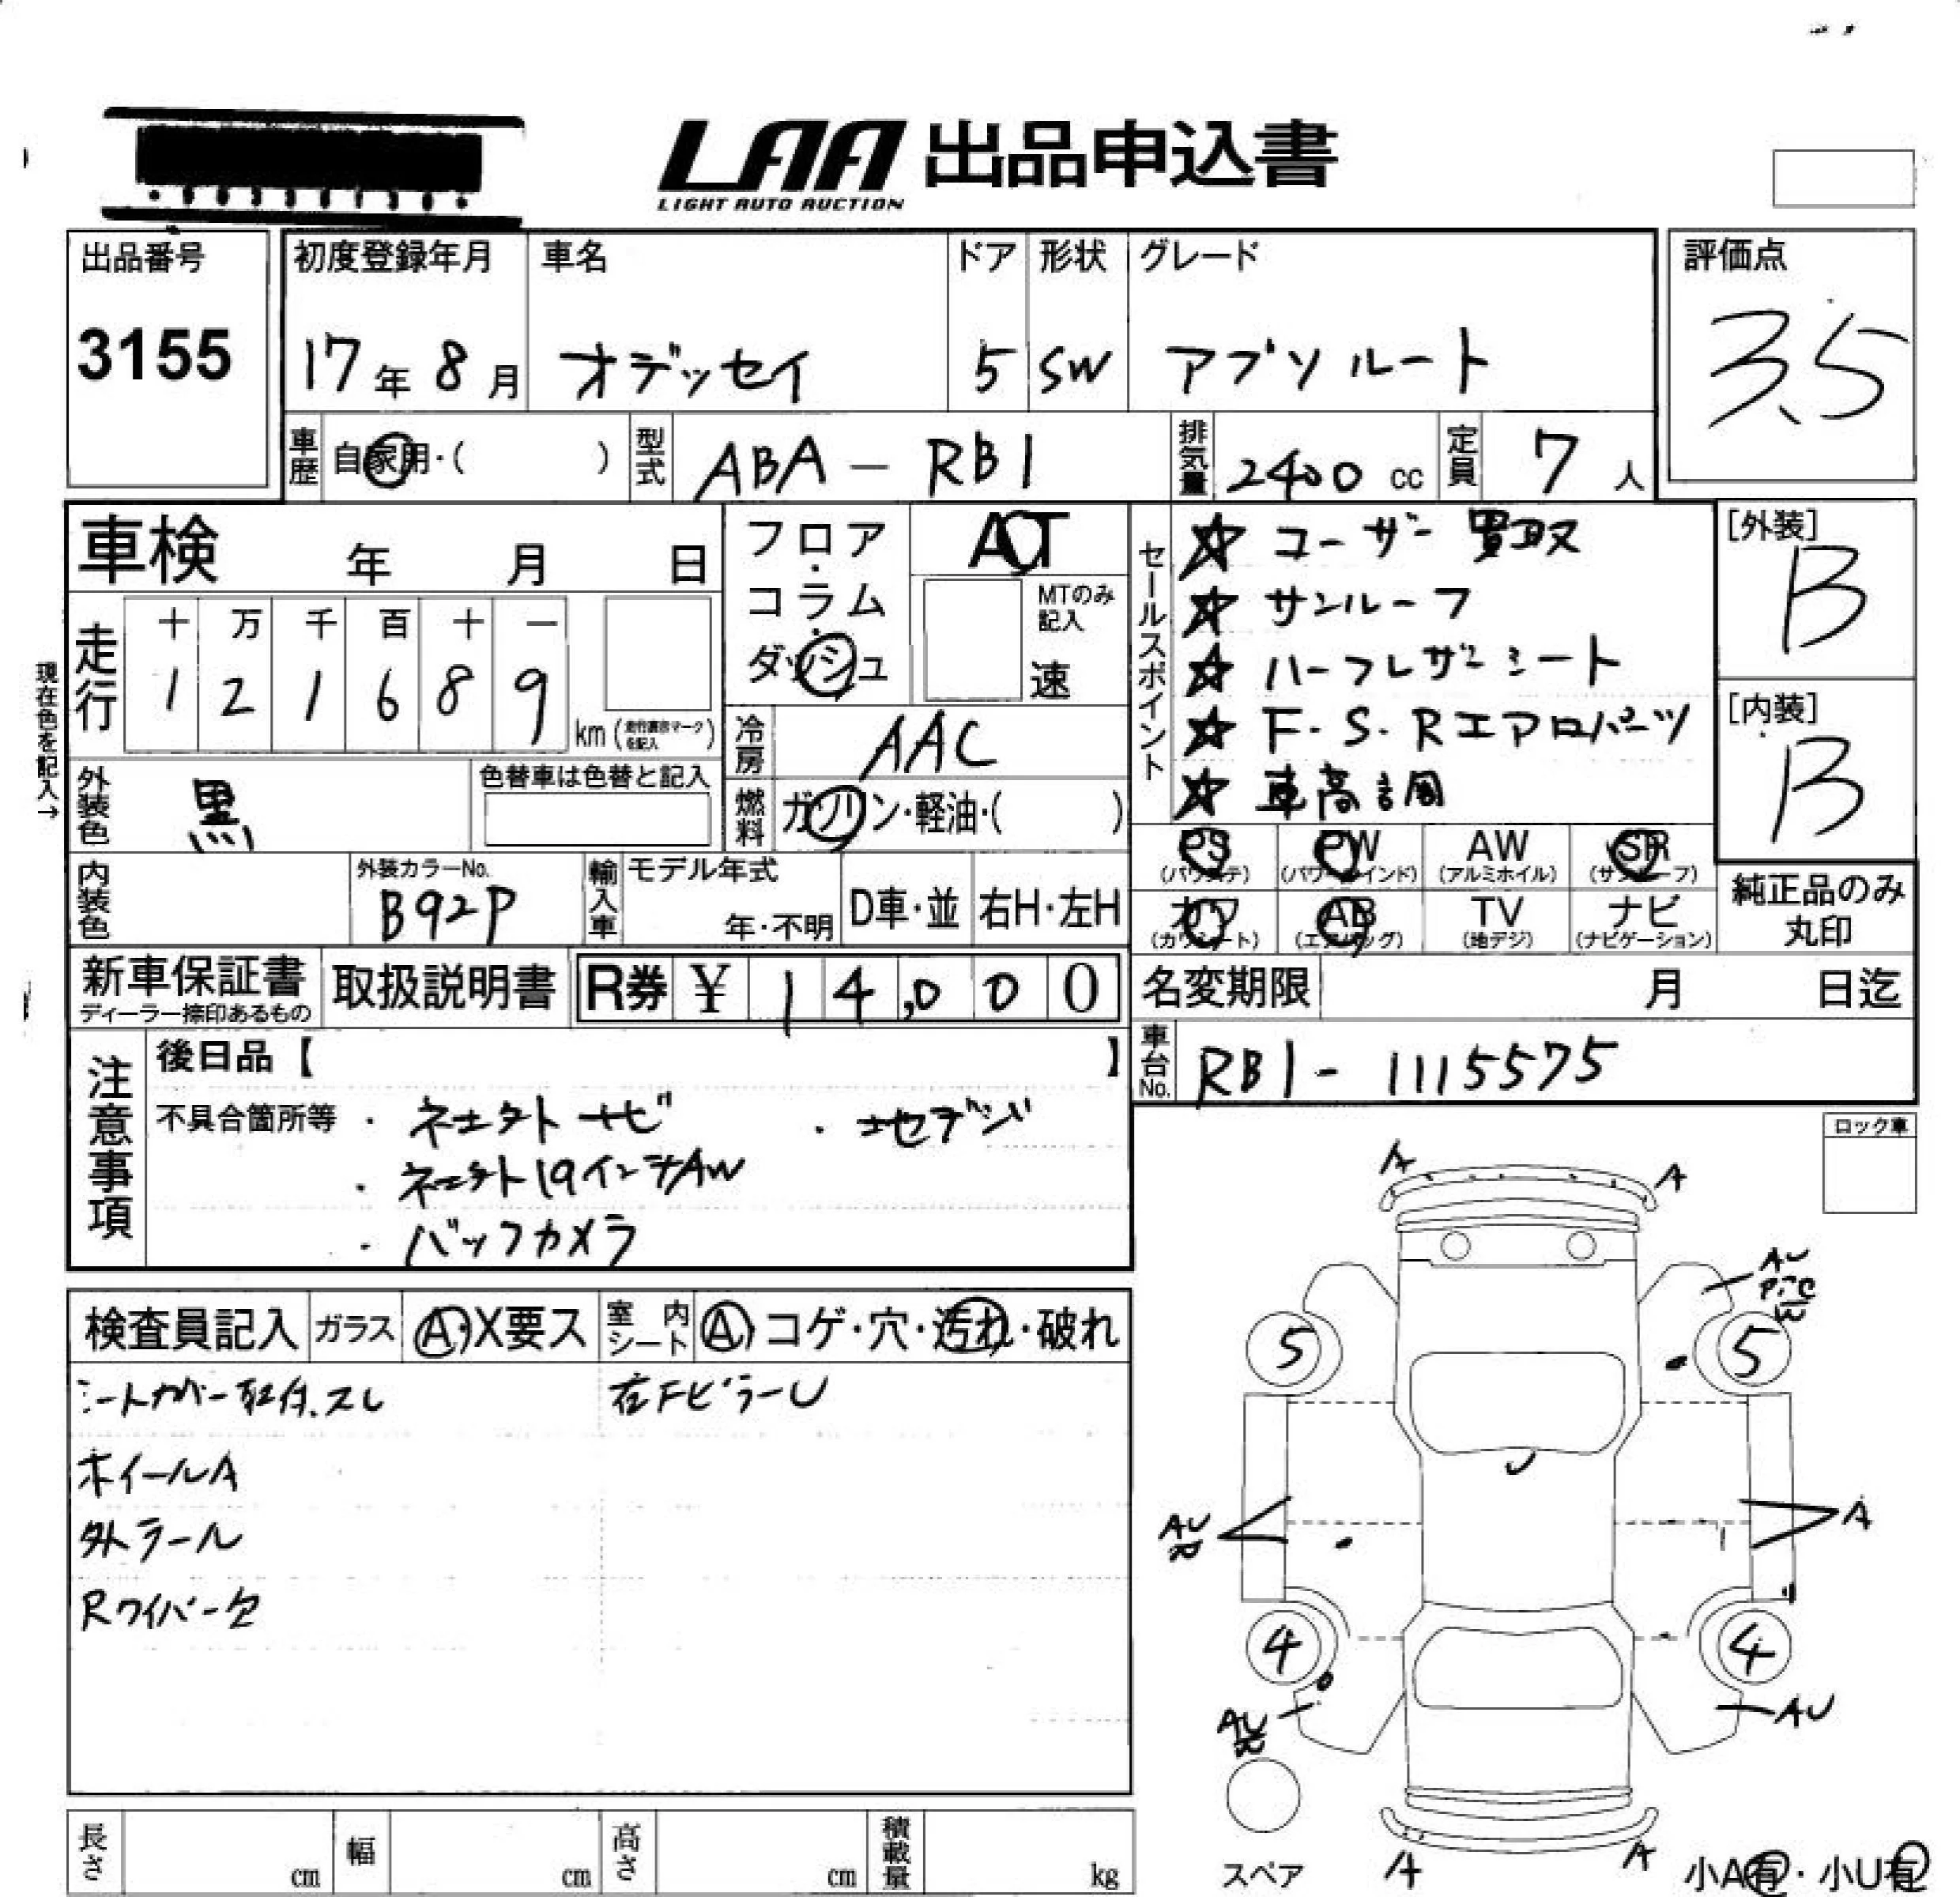 LAA 出品申込書
LIGHT AUTO AUCTION
出品番号
3155
初度登録年月
17年8月
車名
オデッセイ
ドア
5
形状
SW
グレード
アブソルート
評価点
3.5
車歴
自家用・( )
型式
ABA-RB1
排気量
2400 cc
定員
7人
車検 年 月 日
走行
十 万 千 百 十 一
1 2 1 6 8 9
km(走行審議マークを記入)
現在色を記入→
フロア・コラム・ダッシュ
AT
MTのみ記入
速
冷房
AAC
燃料
ガソリン・軽油・( )
外装色
黒
色替車は色替と記入
内装色
外装カラーNo.
B92P
輸入車
モデル年式
年・不明
D車・並
右H・左H
セールスポイント
☆ユーザー買取
☆サンルーフ
☆ハーフレザーシート
☆F・S・Rエアロパーツ
☆車高調
[外装]
B
[内装]
B
PS (パワステ)
PW (パワーウインド)
AW (アルミホイル)
SR (サンルーフ)
カワ (カワシート)
AB (エアバッグ)
TV (地デジ)
ナビ (ナビゲーション)
純正品のみ丸印
新車保証書
ディーラー捺印あるもの
取扱説明書
R券 ¥14,000
名変期限 月 日迄
車台No.
RB1-1115575
注意事項
後日品【 】
不具合箇所等
・社外ナビ
・地デジ
・社外19インチAW
・バックカメラ
ロック車
検査員記入
ガラス
A・X要ス
室内シート
A・コゲ・穴・汚れ・破れ
シートカバー取付.スレ
右FピラーU
ホイールA
外ラール
Rワイパー欠
A
A
AU
5
5
U
AU
A
4
4
AU
AU
A
A
スペア
小A有・小U有
長さ cm
幅 cm
高さ cm
積載量 kg